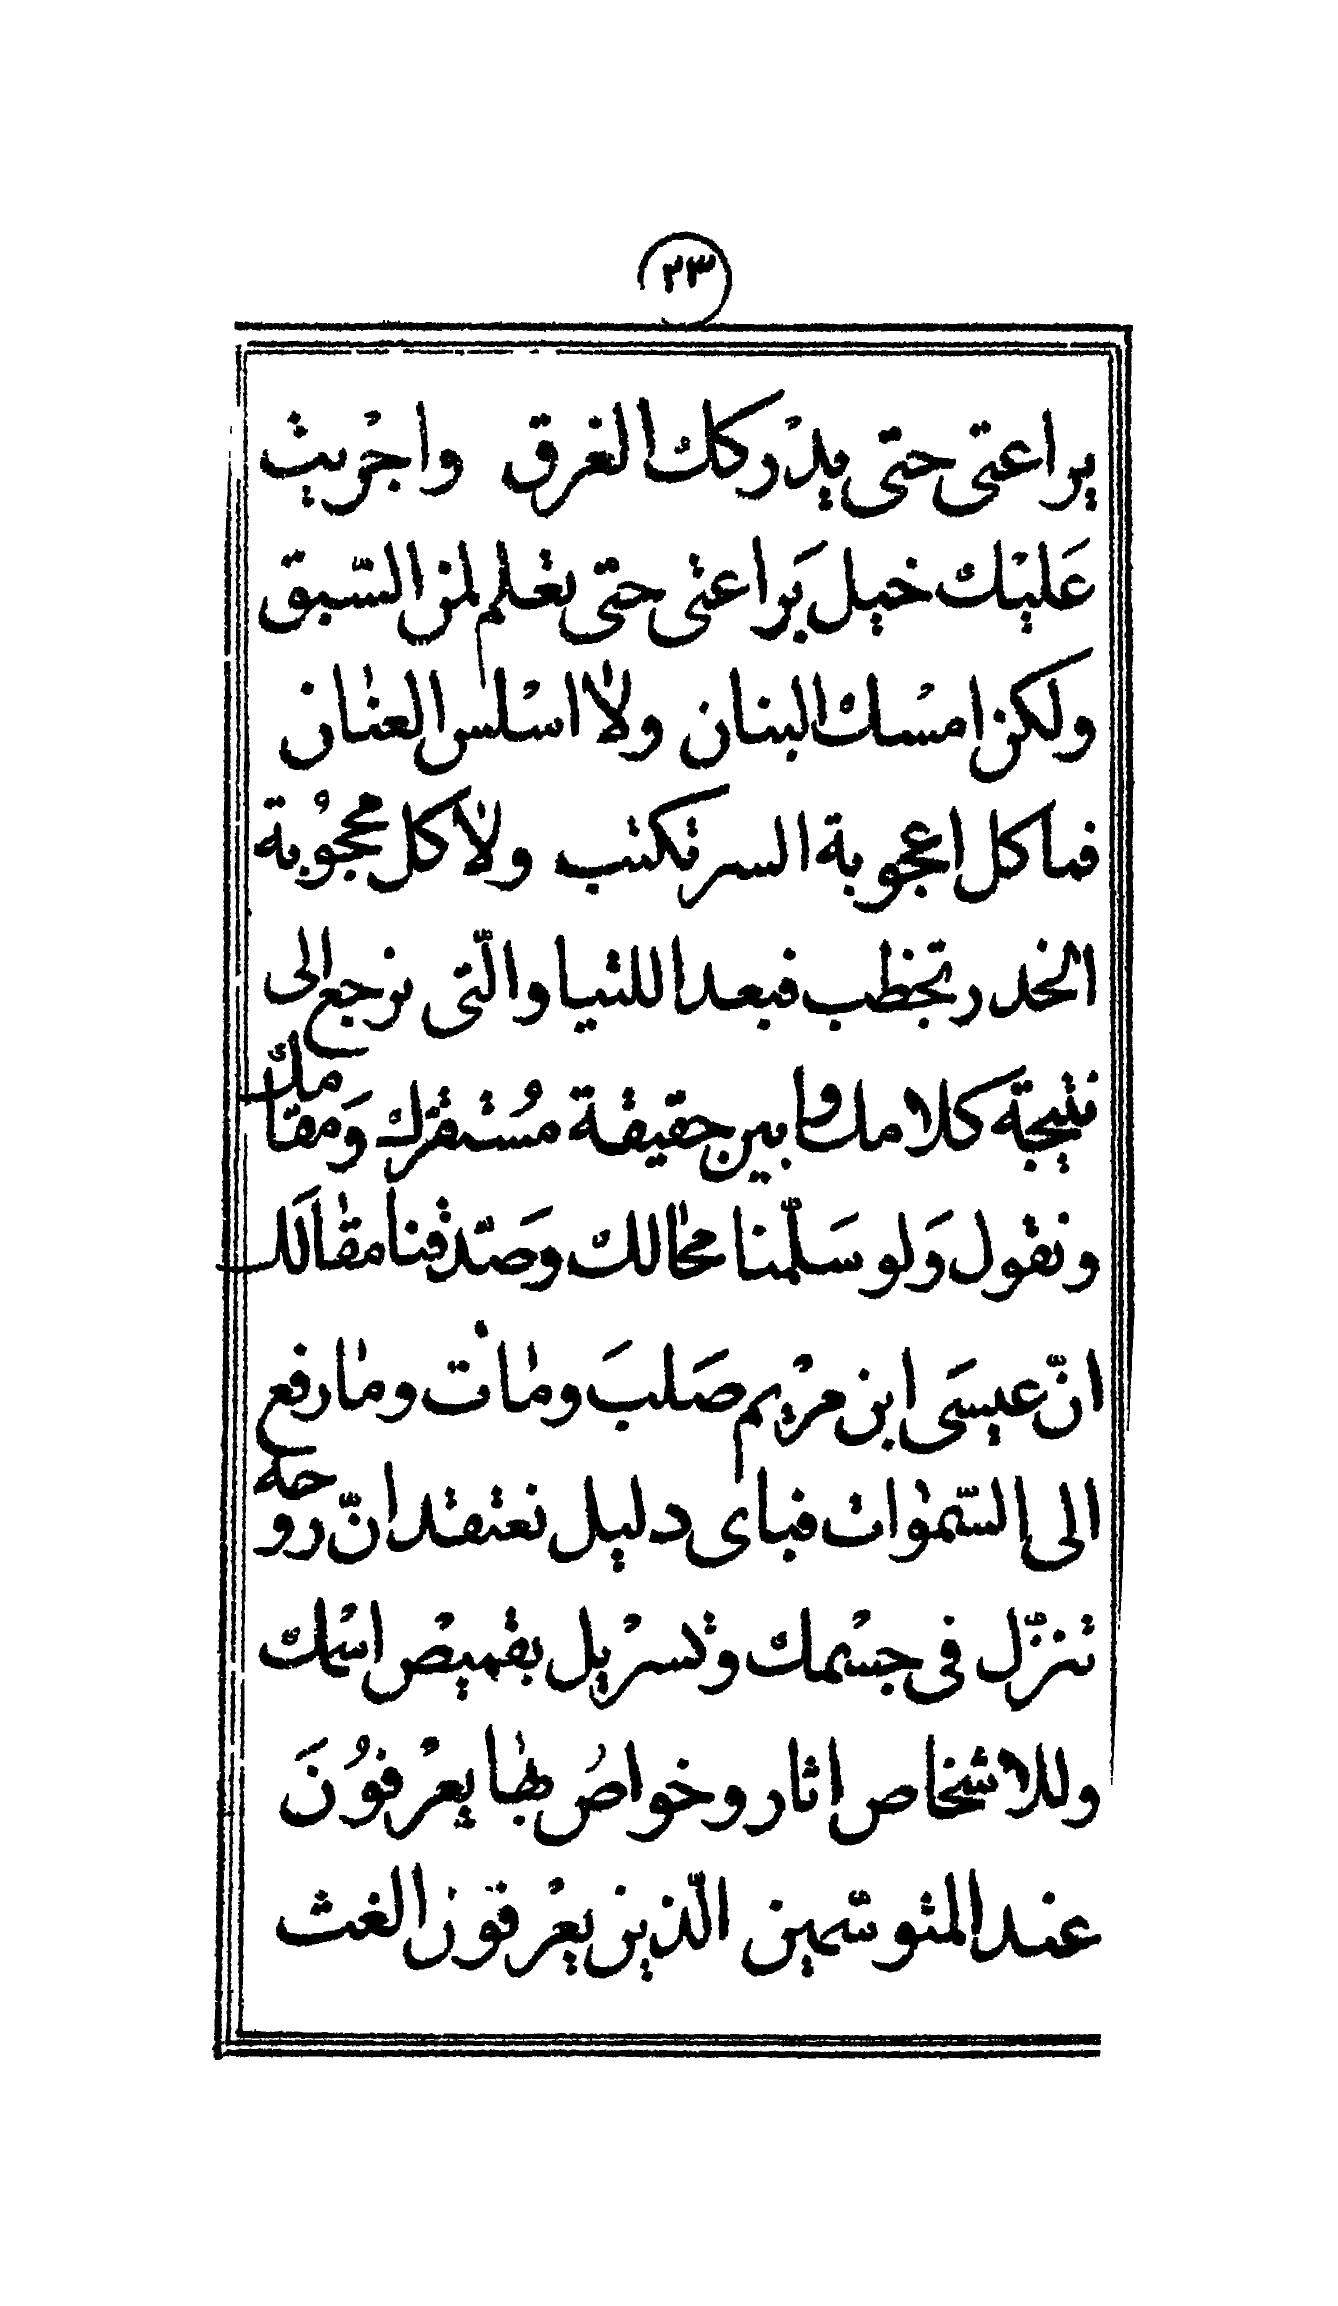 ٢٣
يراعتى حتى يدْرکك الغرق واجْريت
عَليْك خيل يَراعتى حتى تعْلم لمن السّبق
ولكن امسْك البنان ولاٰ اسْلس العنٰان
فما كل اعجوبة السر تكتب ولاٰ كل محجوُبة
الخدر تخطب فبعد اللتيا والّتى نرجع الى
نتيجة كلامك وابين حقيقة مُستقرك وَمقامك
ونقول وَلو سَلّمنا محٰالك وَصَدّقنا مقٰالَك
انّ عيسَى ابن مرْيم صَلبَ ومٰات ومٰا رفع
الى السّموٰات فباى دليل نعتقد انّ روحه
تنزّل فى جسْمك وتسرْبل بقميصْ اسْمك
وللاشخاص اثار وخواصُ بهٰا يعرْفوُنَ
عند المتوسّمين الّذين يعْرفون الغث